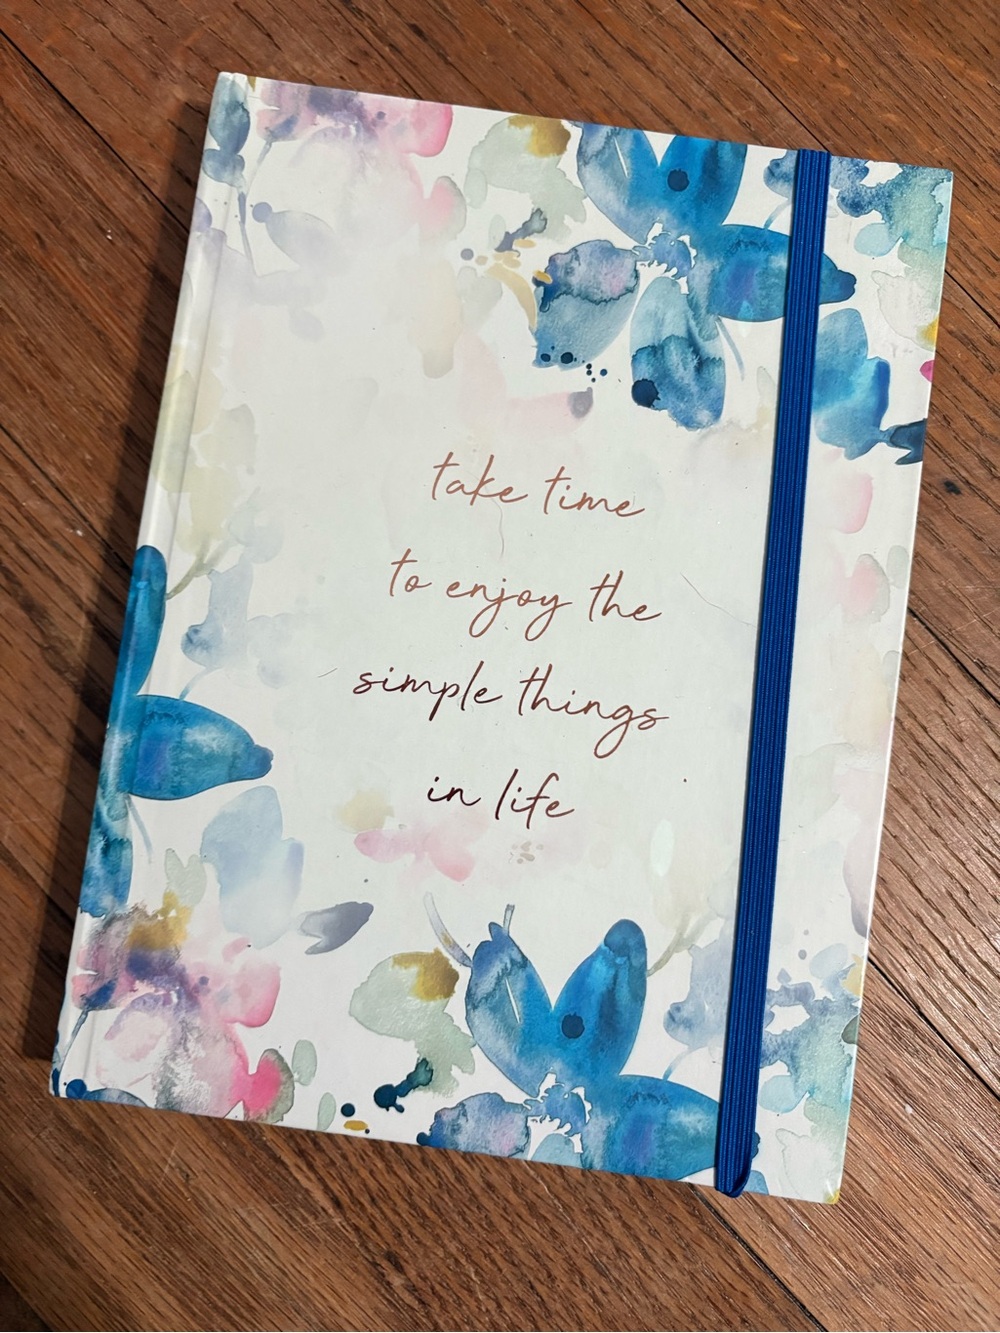 take time
to enjoy the
simple things
in life